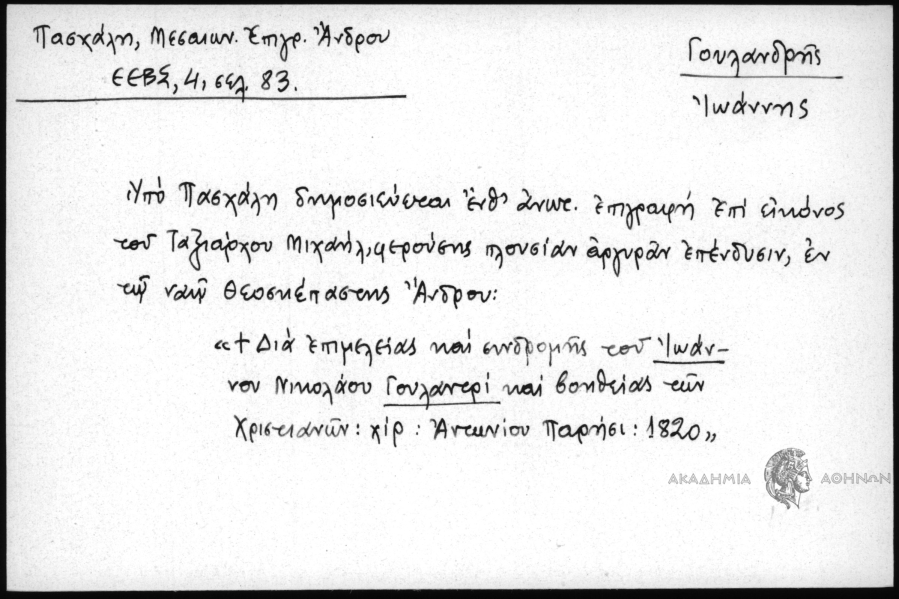 Πασχάλη, Μεσαιων. Ἐπιγρ. Ἄνδρου
ΕΕΒΣ, 4, σελ. 83.
Γουλανδρῆς
Ἰωάννης
Ὑπὸ Πασχάλη δημοσιεύεται ἔνθ' ἄνωτ. ἐπιγραφή ἐπί εἰκόνος
τοῦ Ταξιάρχου Μιχαήλ, φερούσης πλουσίαν ἀργυρᾶν ἐπένδυσιν, ἐν
τῷ ναῷ Θεοσκέπαστης Ἄνδρου:
«+ Διὰ ἐπιμελείας καί συνδρομῆς τοῦ Ἰωάν-
νου Νικολάου Γουλαντρί καί βοηθείας τῶν
Χριστιανῶν: χίρ: Ἀντωνίου Παρήσι: 1820»
ΑΚΑΔΗΜΙΑ ΑΘΗΝΩΝ